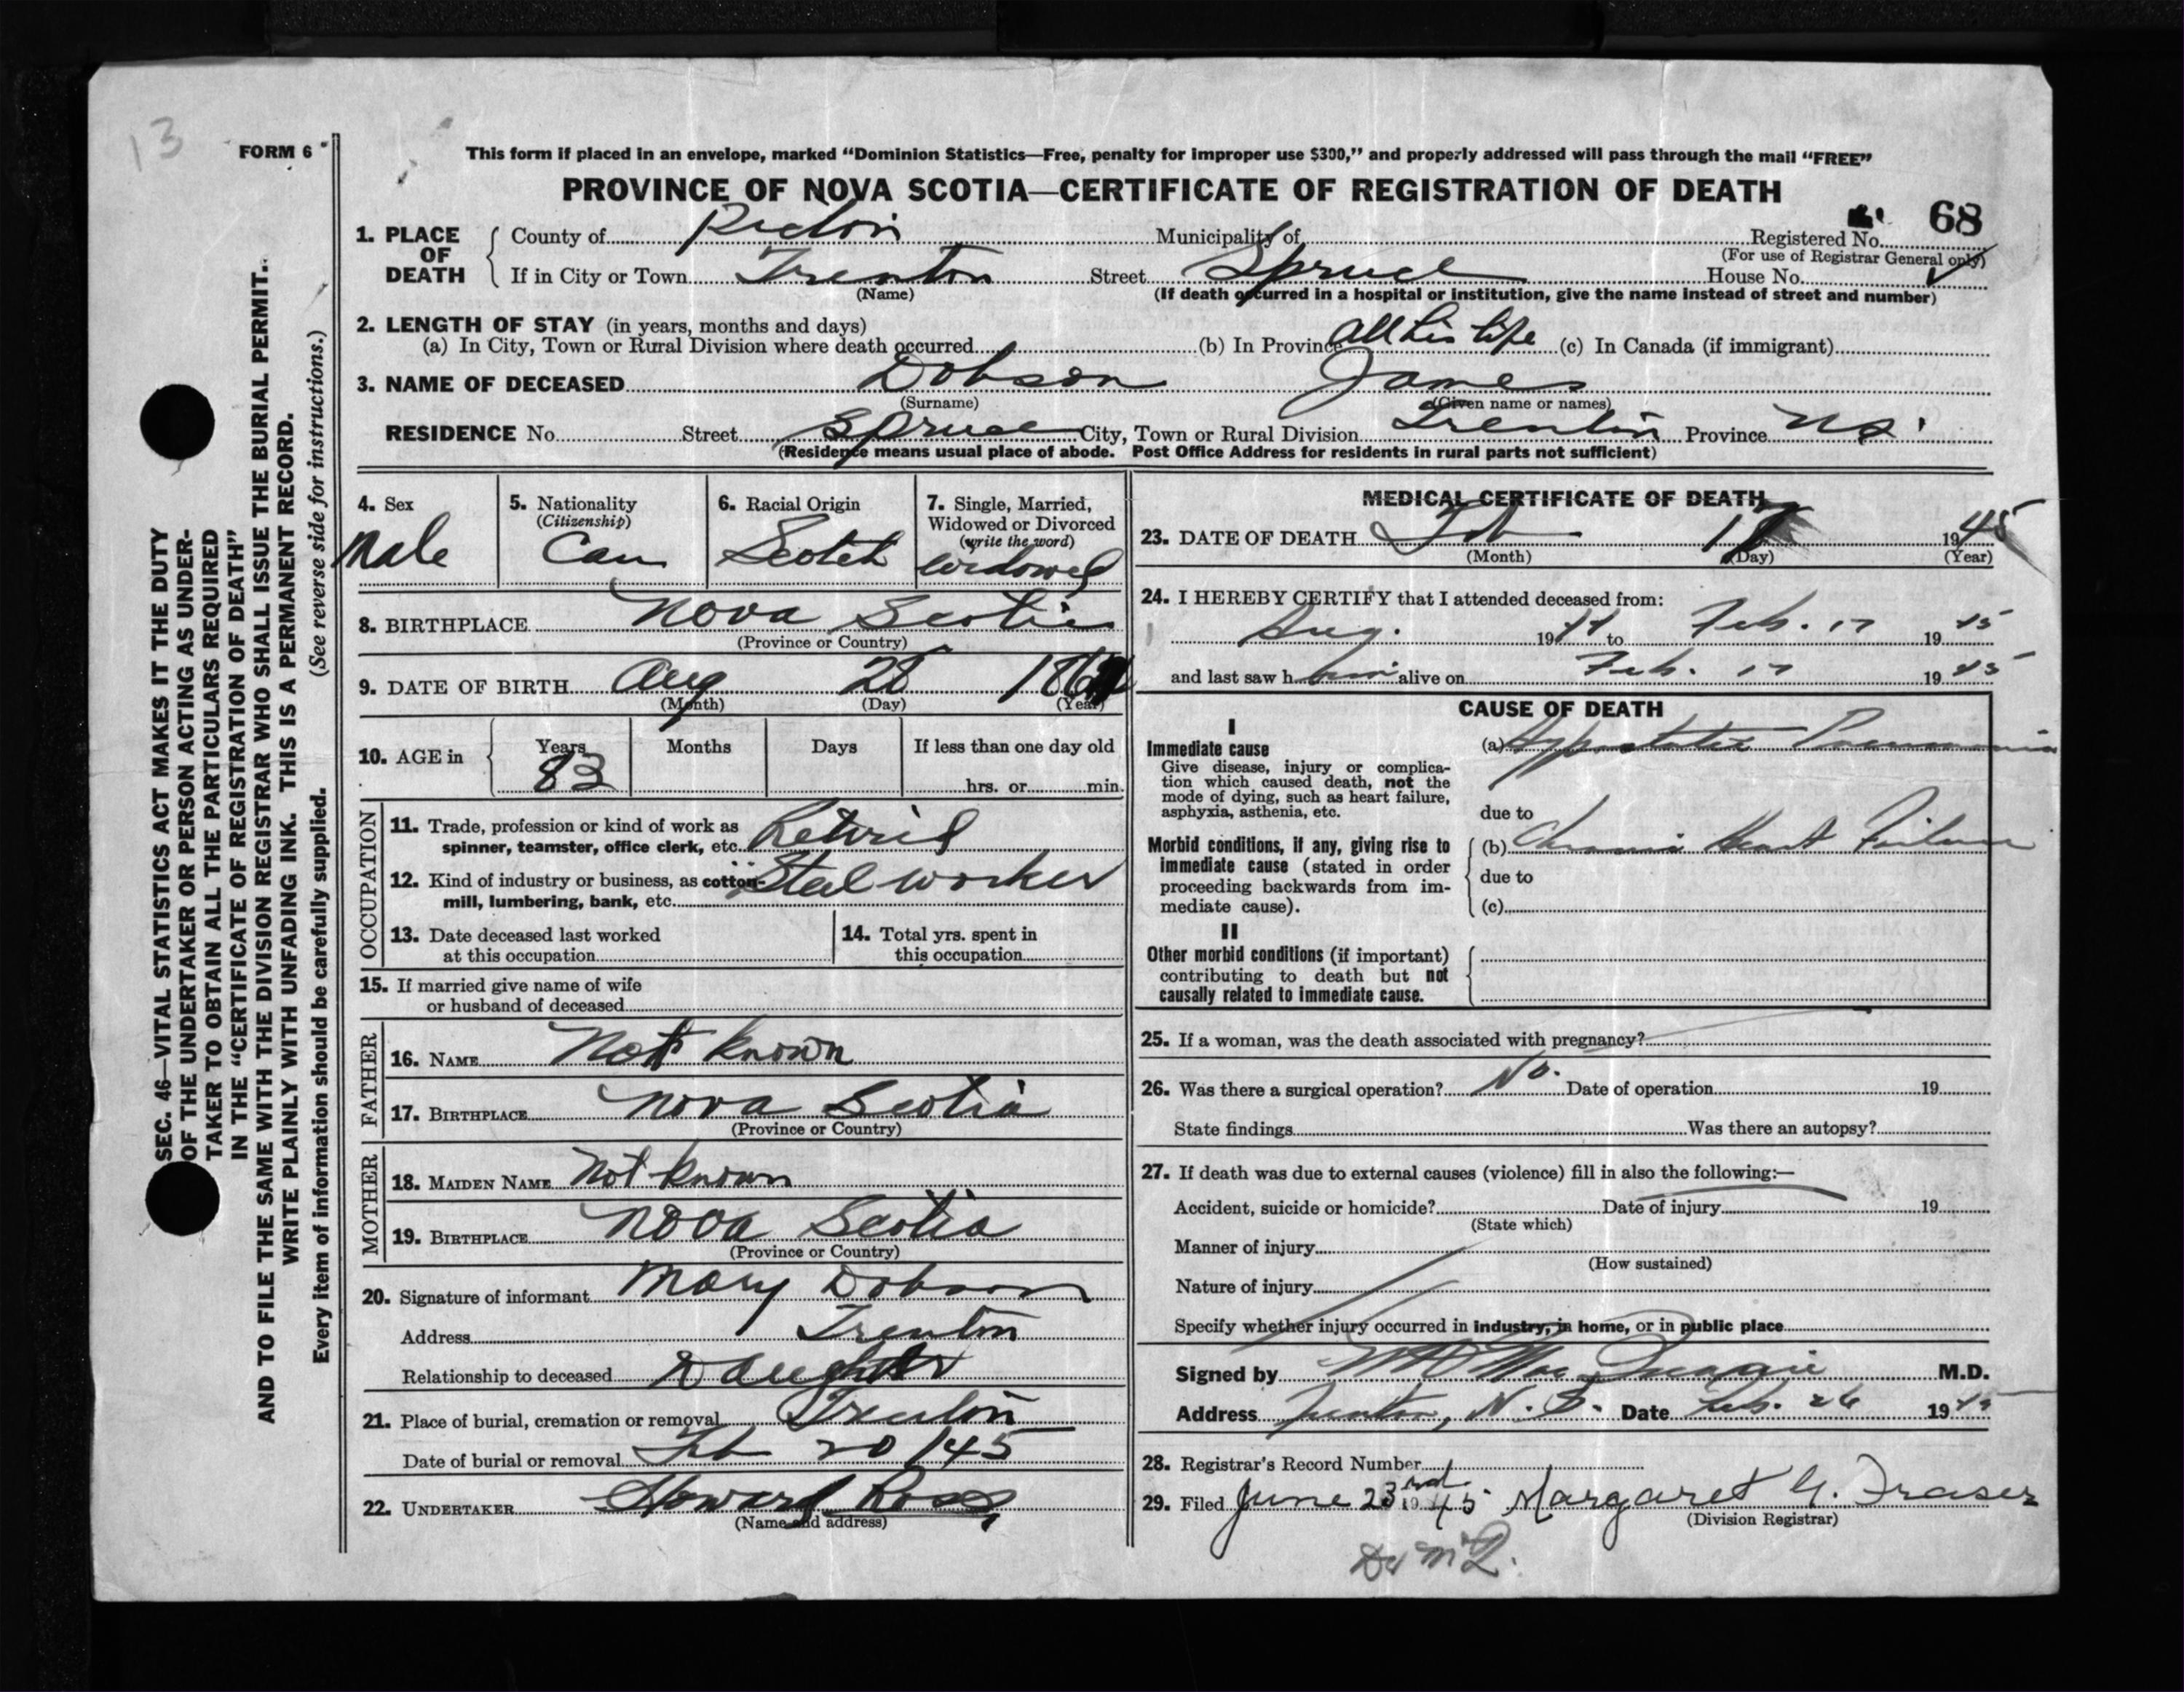 13
FORM 6
This form if placed in an envelope, marked “Dominion Statistics—Free, penalty for improper use $300,” and properly addressed will pass through the mail “FREE”
PROVINCE OF NOVA SCOTIA—CERTIFICATE OF REGISTRATION OF DEATH
68
1. PLACE OF DEATH
County of Pictou Municipality of Registered No.
(For use of Registrar General only)
If in City or Town Trenton Street Spruce House No.
(Name) (If death occurred in a hospital or institution, give the name instead of street and number)
2. LENGTH OF STAY (in years, months and days)
(a) In City, Town or Rural Division where death occurred (b) In Province All his life (c) In Canada (if immigrant)
3. NAME OF DECEASED Dobson James
(Surname) (Given name or names)
RESIDENCE No. Street Spruce City, Town or Rural Division Trenton Province N.S.
(Residence means usual place of abode. Post Office Address for residents in rural parts not sufficient)
4. Sex
Male
5. Nationality
(Citizenship)
Can
6. Racial Origin
Scotch
7. Single, Married,
Widowed or Divorced
(write the word)
widowed
8. BIRTHPLACE Nova Scotia
(Province or Country)
9. DATE OF BIRTH Aug 28 186
(Month) (Day) (Year)
10. AGE in Years Months Days If less than one day old
83 hrs. or min.
OCCUPATION
11. Trade, profession or kind of work as
spinner, teamster, office clerk, etc. Retired
12. Kind of industry or business, as cotton-
mill, lumbering, bank, etc. Steel worker
13. Date deceased last worked
at this occupation
14. Total yrs. spent in
this occupation
15. If married give name of wife
or husband of deceased
FATHER
16. NAME Not known
17. BIRTHPLACE Nova Scotia
(Province or Country)
MOTHER
18. MAIDEN NAME Not known
19. BIRTHPLACE Nova Scotia
(Province or Country)
20. Signature of informant Mary Dobson
Address Trenton
Relationship to deceased Daughter
21. Place of burial, cremation or removal Trenton
Date of burial or removal Feb 20/45
22. UNDERTAKER Howard Ross
(Name and address)
MEDICAL CERTIFICATE OF DEATH
23. DATE OF DEATH Feb 17 1945
(Month) (Day) (Year)
24. I HEREBY CERTIFY that I attended deceased from:
Aug. 1944 to Feb. 17 1945
and last saw him alive on Feb. 17 1945
CAUSE OF DEATH
I
Immediate cause (a) Hypostatic Pneumonia
Give disease, injury or complica-
tion which caused death, not the
mode of dying, such as heart failure,
asphyxia, asthenia, etc. due to
Morbid conditions, if any, giving rise to (b) Chronic Heart Failure
immediate cause (stated in order
proceeding backwards from im- due to
mediate cause). (c)
II
Other morbid conditions (if important)
contributing to death but not
causally related to immediate cause.
25. If a woman, was the death associated with pregnancy?
26. Was there a surgical operation? No. Date of operation 19
State findings Was there an autopsy?
27. If death was due to external causes (violence) fill in also the following:—
Accident, suicide or homicide? Date of injury 19
(State which)
Manner of injury
(How sustained)
Nature of injury
Specify whether injury occurred in industry, in home, or in public place
Signed by M.D.
Address Trenton, N.S. Date Feb. 26 1945
28. Registrar's Record Number
29. Filed June 23rd 1945 Margaret G. Fraser
(Division Registrar)
SEC. 46—VITAL STATISTICS ACT MAKES IT THE DUTY
OF THE UNDERTAKER OR PERSON ACTING AS UNDER-
TAKER TO OBTAIN ALL THE PARTICULARS REQUIRED
IN THE “CERTIFICATE OF REGISTRATION OF DEATH”
AND TO FILE THE SAME WITH THE DIVISION REGISTRAR WHO SHALL ISSUE THE BURIAL PERMIT.
WRITE PLAINLY WITH UNFADING INK. THIS IS A PERMANENT RECORD.
Every item of information should be carefully supplied. (See reverse side for instructions.)